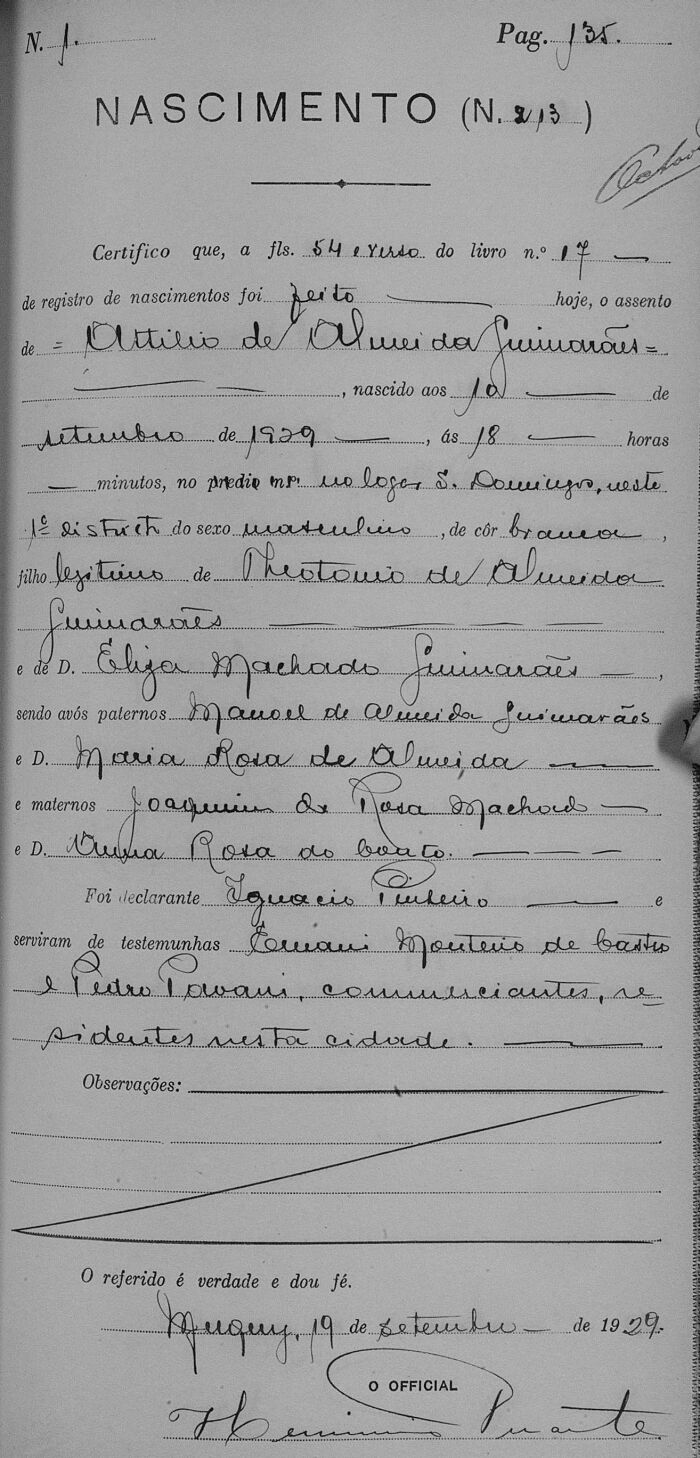 N. 1. Pag. 135.
NASCIMENTO (N. 213)
Certifico que, a fls. 54 e verso do livro n.º 17 —
de registro de nascimentos foi feito — hoje, o assento
de = Attilio de Almeida Guimarães =
— —, nascido aos 10 — de
setembro de 1929 —, ás 18 — horas
— minutos, no predio nº. no logar S. Domingos, neste
1º districto do sexo masculino, de côr branca,
filho legitimo de Theotonio de Almeida
Guimarães — — — —
e de D. Eliza Machado Guimarães —,
sendo avós paternos Manoel de Almeida Guimarães
e D. Maria Rosa de Almeida —
e maternos Joaquim da Rosa Machado —
e D. Anna Rosa do Couto. — — —
Foi declarante Ignacio Pinheiro — e
serviram de testemunhas Ernani Monteiro de Castro
e Pedro Pavani, commerciantes, re-
sidentes nesta cidade. —
Observações:
O referido é verdade e dou fé.
Muquy, 19 de setembro — de 1929.
O OFFICIAL
Duarte